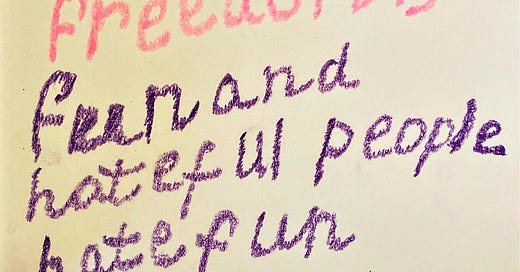 freedom is
fun and
hateful people
hate fun